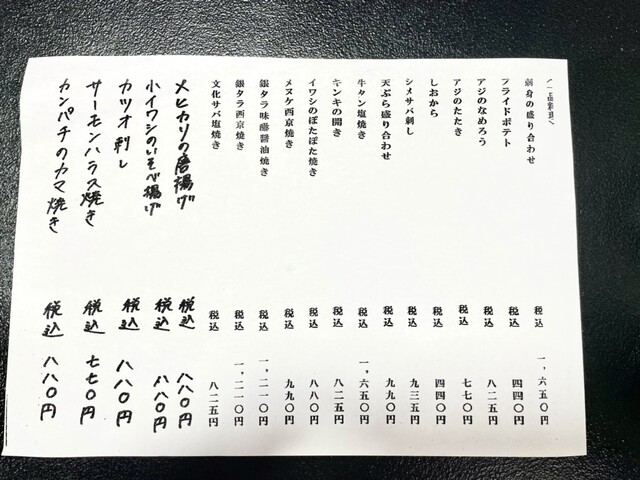 刺身の盛り合わせ 税込 一、六五〇円
フライドポテト 税込 四四〇円
アジのなめろう 税込 八二五円
アジのたたき 税込 七七〇円
しおから 税込 四四〇円
シメサバ刺し 税込 九三五円
天ぷら盛り合わせ 税込 九九〇円
牛タン塩焼き 税込 一、六五〇円
キンキの開き 税込 八二五円
イワシのぽたぽた焼き 税込 八八〇円
メヌケ西京焼き 税込 九九〇円
銀タラ味醂醤油焼き 税込 一、二一〇円
銀タラ西京焼き 税込 一、二一〇円
文化サバ塩焼き 税込 八二五円
メヒカリの唐揚げ 税込 八八〇円
小イワシのいそべ揚げ 税込 八八〇円
カツオ刺し 税込 八八〇円
サーモンハラス焼き 税込 七七〇円
カンパチのカマ焼き 税込 八八〇円